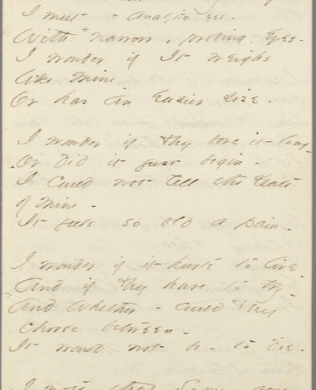 I meet - analyze -
With narrow, probing, eyes -
I wonder if It weighs
like Mine -
Or has an Easier size -
I wonder if They bore it long -
Or did it just begin -
I could not tell the Date
of Mine -
It feels so old a pain -
I wonder if it hurts to live -
And if They have to try -
And whether - could They
choose between -
It would not be - to die -
I note that Some -